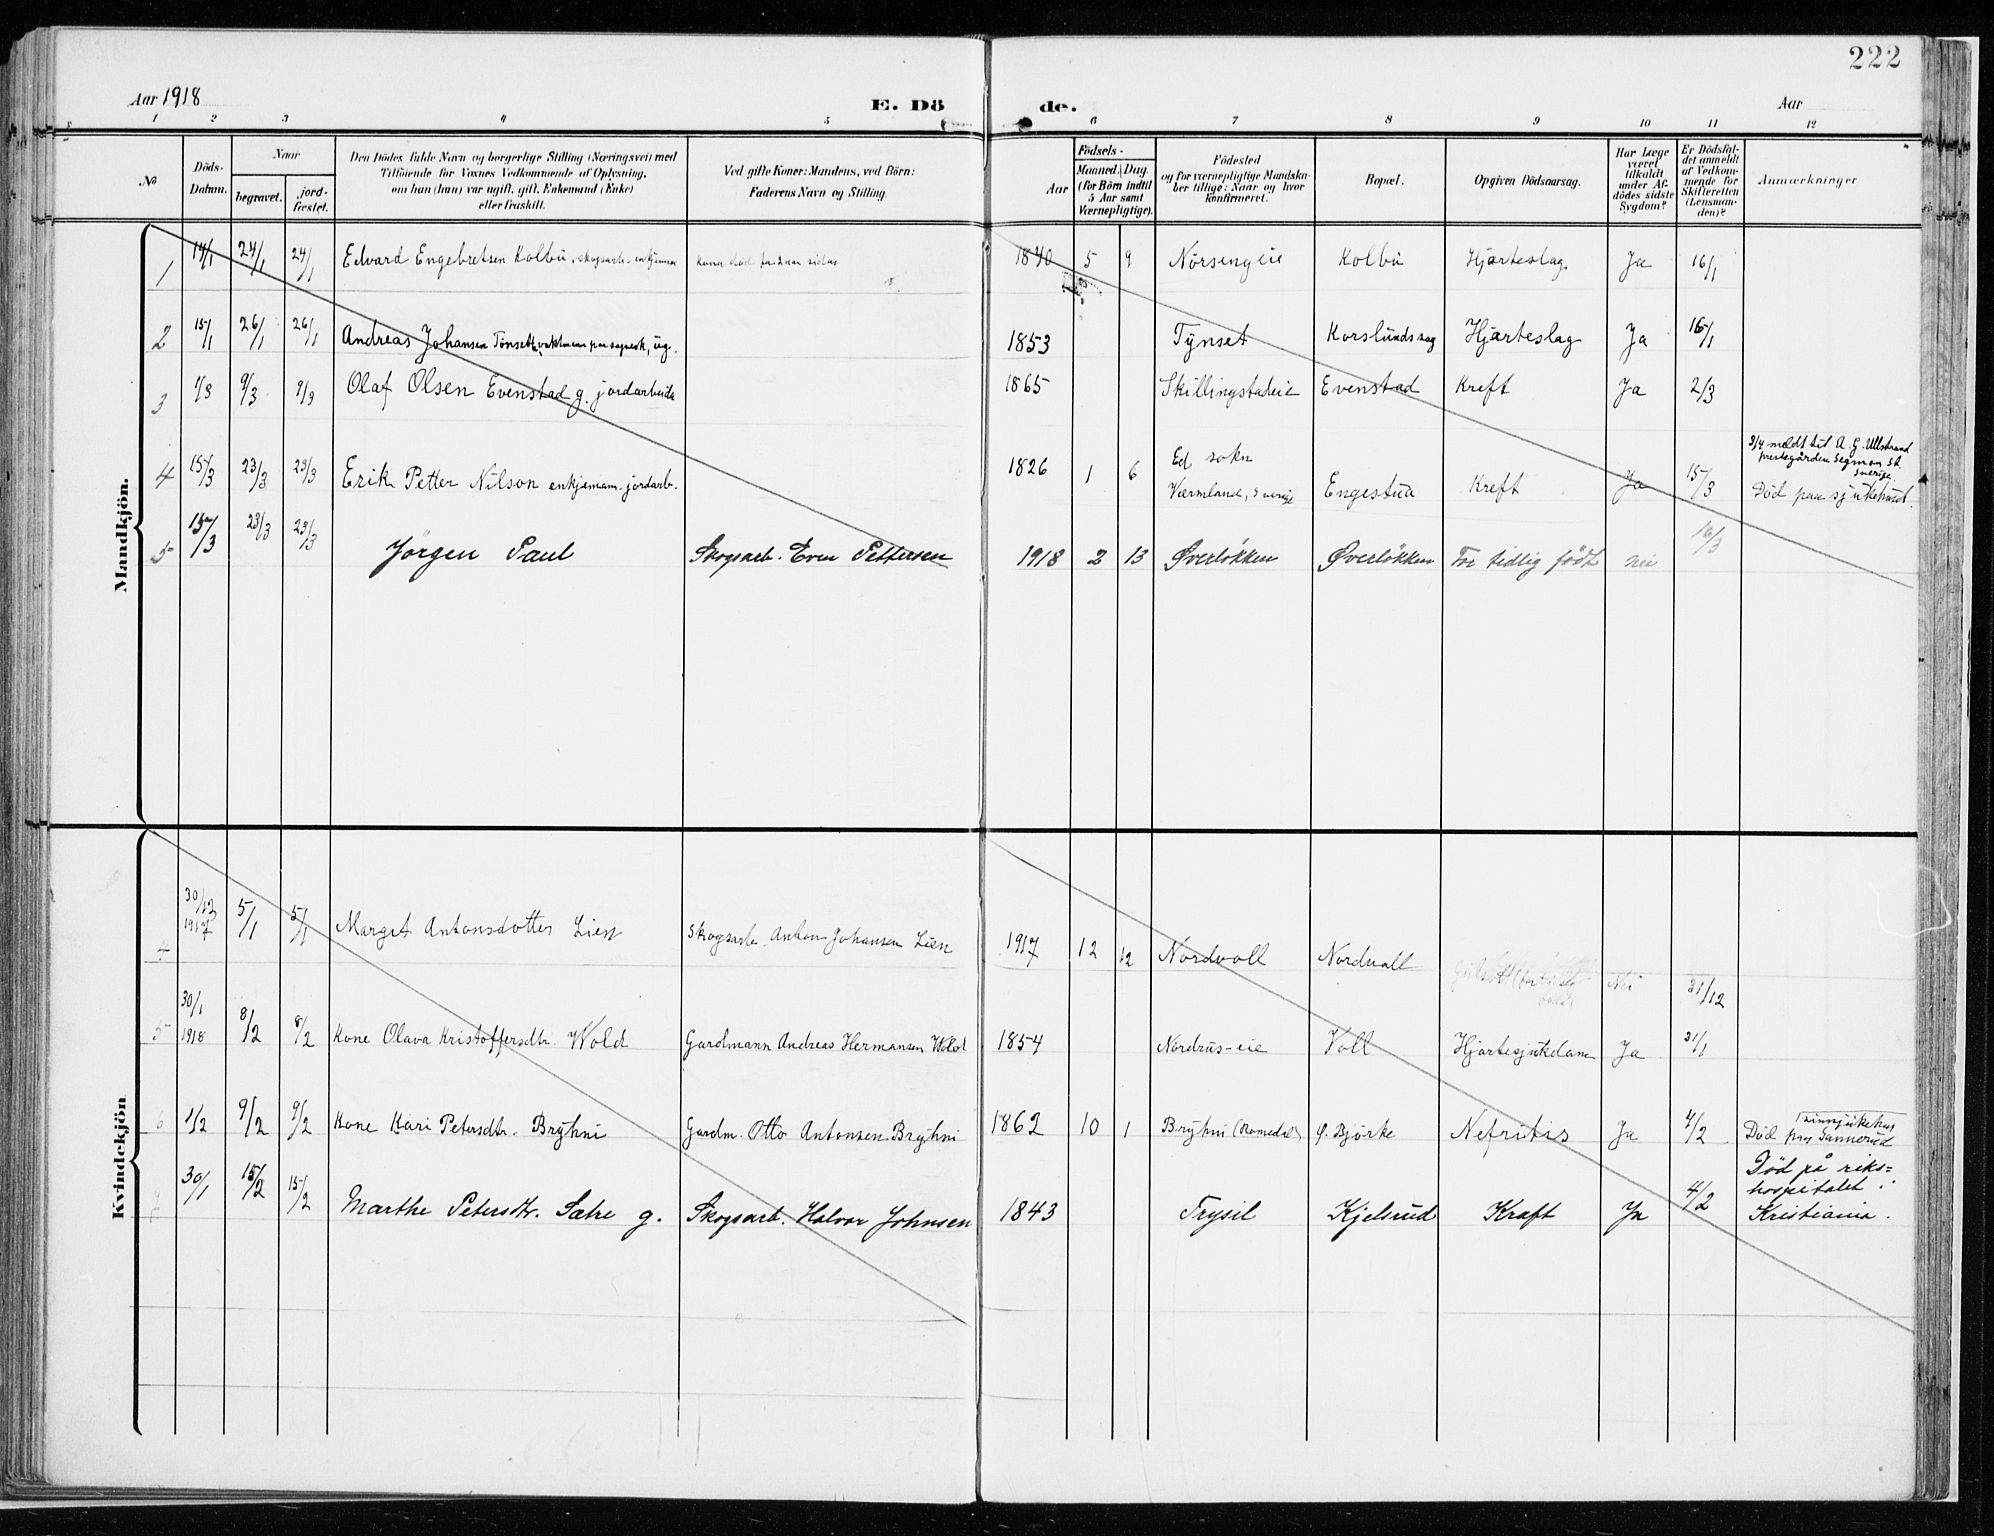 222
Aar 1918
E. Döde.
Aar
1 2 3 4 5 6 7 8 9 10 11 12
No
Döds-Datum.
Naar
begravet.
jord-fæstet.
Den Dödes fulde Navn og borgerlige Stilling (Næringsvei) med
Tilföiende for Voxnes Vedkommende af Oplysning,
om han (hun) var ugift, gift, Enkemand (Enke)
eller fraskilt.
Ved gifte Koner: Mandens, ved Börn:
Faderens Navn og Stilling.
Födsels-
Aar
Maaned. Dag.
(for Börn indtil
5 Aar samt
Værnepligtige).
Födested
og for værnepligtige Mandska-
ber tillige: Naar og hvor
konfirmeret.
Bopæl.
Opgiven Dödsaarsag.
Har Læge
været
tilkaldt
under Af-
dödes sidste
Sygdom?
Er Dödsfal-
det anmeldt
af Vedkom-
mende for
Skifteretten
(Lensman-
den)?
Anmærkninger
Mandkjön.
1 14/1 24/1 24/1 Edvard Engebretsen Kolbu, skogsarb. enkjeman kona död 1840 5 9 Nörsengeie Kolbu Hjarteslag Ja 16/1
2 15/1 26/1 26/1 Andreas Johansen Tönset, ug. 1853 Tynset Korslundssag Hjarteslag Ja 16/1
3 1/3 9/3 9/3 Olaf Olsen Evenstad g. jordarbeida 1865 Skillingstadeie Evenstad Kreft Ja 2/3
3/4 meldt til A. G. Ullstrand
prestegården Segmon st.
Sverige.
4 15/3 23/3 23/3 Erik Petter Nilson enkjemann jordarb. 1826 1 6 Ed sokn
Værmland, Sverige Engestua Kreft Ja 15/3 Död paa sjukehuset.
5 15/3 23/3 23/3 Jörgen Paul Skogsarb. Even Pettersen 1918 2 13 Øverløkken Øverløkken For tidlig född nei 16/3
Kvindekjön
4 30/12 1917 5/1 5/1 Margit Antonsdotter Lien Skogsarb. Anton Johansen Lien 1917 12 12 Nordvoll Nordvoll Nei 31/12
5 30/1 1918 8/2 8/2 Kone Olava Kristoffersdtr. Wold Gardmann Andreas Hermansen Wold 1854 Nordrus-eie Voll Hjartesjukdom Ja 31/1
6 1/2 9/2 9/2 Kone Kari Petersdtr. Bryhni Gardm. Otto Antonsen Bryhni 1862 10 1 Bryhni (Romedal) Ø. Björke Nefritis Ja 4/2 Död paa Sannerud
sinnsjukehus
30/1 15/2 15/2 Marthe Petersdtr. Sætre g. Skogsarb. Halvor Johnsen 1843 Trysil Kjelsrud Kræft Ja 4/2 Död på riks=
hospitalet i
Kristiania.